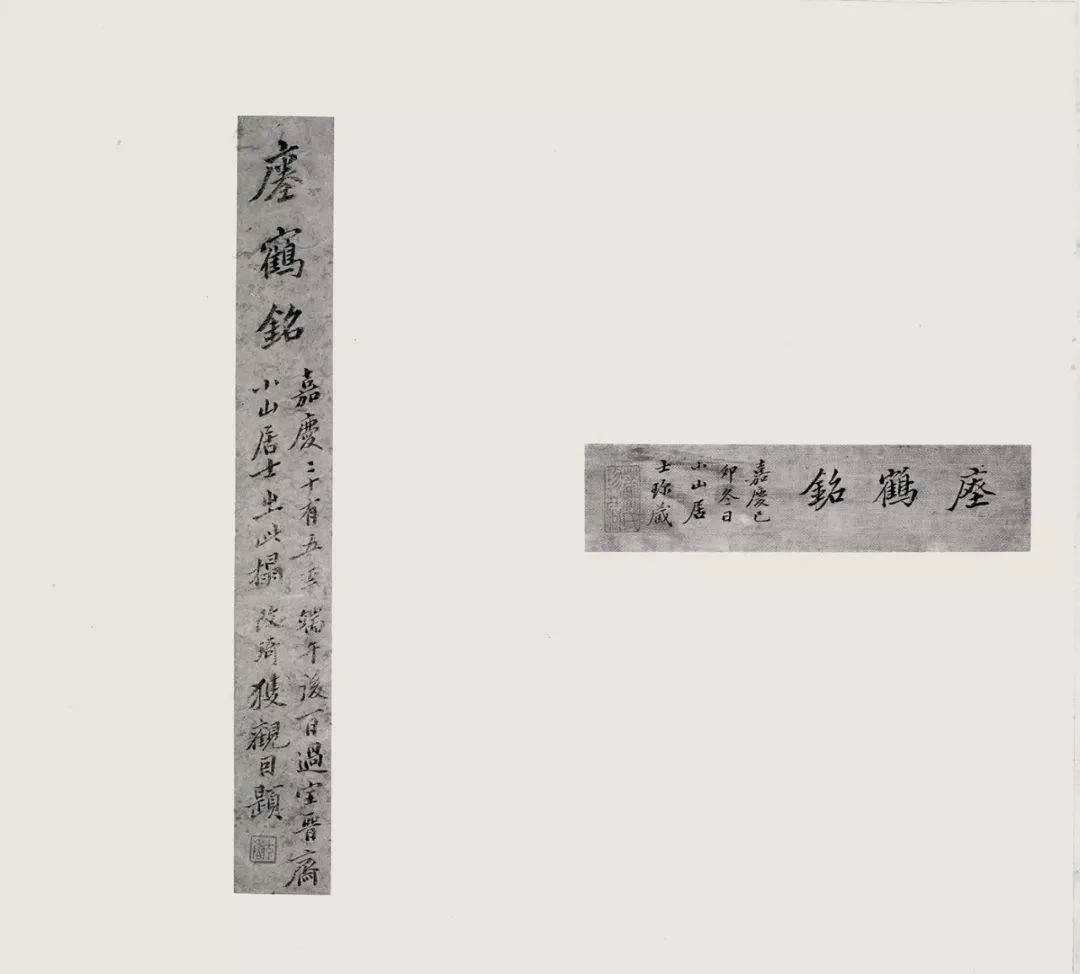 瘞鶴銘
嘉慶己
卯冬日
小山居
士珎藏
瘞鶴銘
嘉慶二十有五年端午後一日過宝晉齋
小山居士出此搨改琦獲觀因題